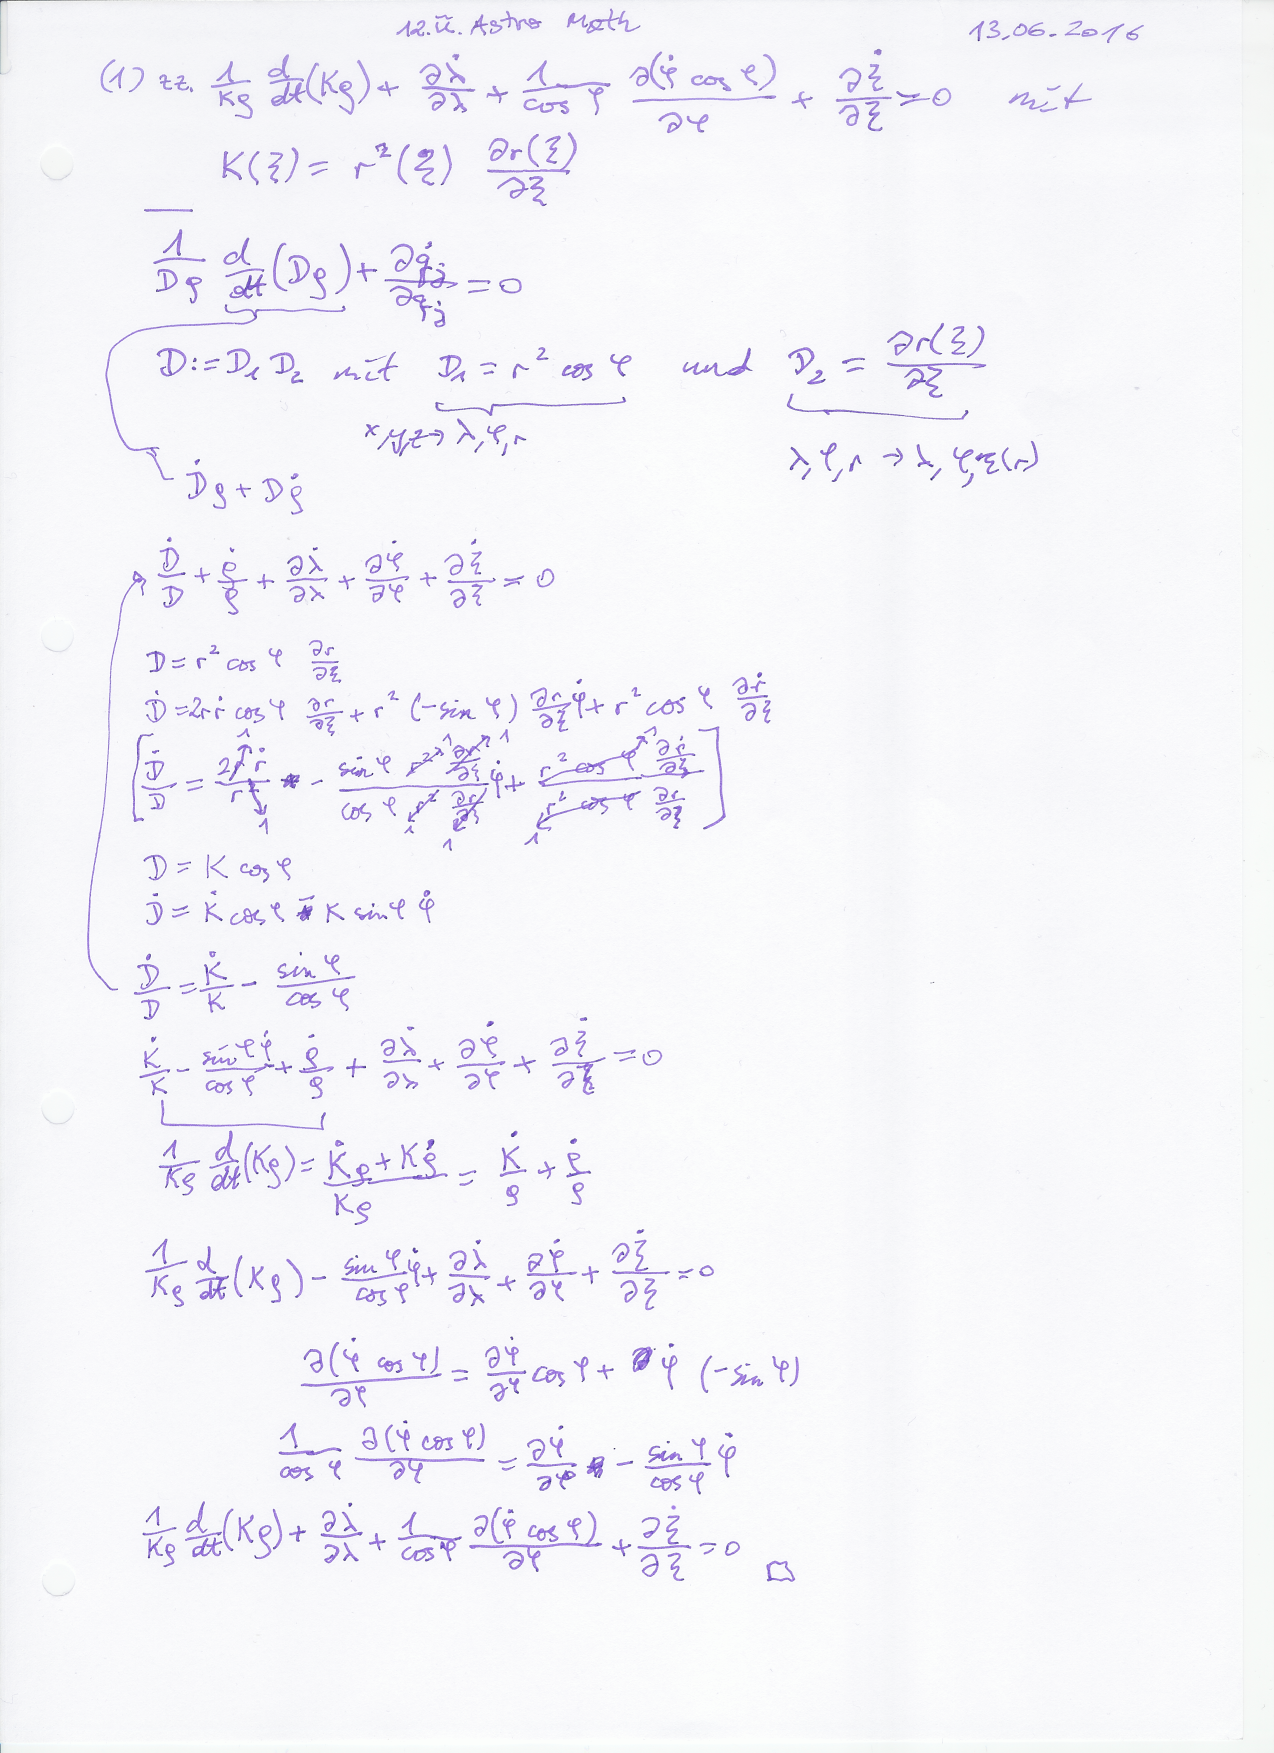 12.Ü. Astro Math 13.06.2016
(1) zz. 1/(Kϱ) d/dt(Kϱ) + ∂λ̇/∂λ + 1/(cos φ) ∂(φ̇ cos φ)/∂φ + ∂ξ̇/∂ξ = 0 mit
K(ξ) = r²(ξ) ∂r(ξ)/∂ξ
1/(Dϱ) d/dt(Dϱ) + ∂q̇ⱼ/∂qⱼ = 0
D := D₁ D₂ mit D₁ = r² cos φ und D₂ = ∂r(ξ)/∂ξ
x,y,z → λ,φ,r λ,φ,r → λ,φ,ξ(r)
Ḋϱ + Dϱ̇
Ḋ/D + ϱ̇/ϱ + ∂λ̇/∂λ + ∂φ̇/∂φ + ∂ξ̇/∂ξ = 0
D = r² cos φ ∂r/∂ξ
Ḋ = 2rṙ cos φ ∂r/∂ξ + r² (-sin φ) ∂r/∂ξ φ̇ + r² cos φ ∂ṙ/∂ξ
[Ḋ/D = 2rṙ/r² - (sin φ r² ∂r/∂ξ)/(cos φ r² ∂r/∂ξ) φ̇ + (r² cos φ ∂ṙ/∂ξ)/(r² cos φ ∂r/∂ξ)]
D = K cos φ
Ḋ = K̇ cos φ - K sin φ φ̇
Ḋ/D = K̇/K - sin φ/cos φ
K̇/K - sin φ φ̇/cos φ + ϱ̇/ϱ + ∂λ̇/∂λ + ∂φ̇/∂φ + ∂ξ̇/∂ξ = 0
1/(Kϱ) d/dt(Kϱ) = (K̇ϱ + Kϱ̇)/(Kϱ) = K̇/ϱ + ϱ̇/ϱ
1/(Kϱ) d/dt(Kϱ) - sin φ/cos φ φ̇ + ∂λ̇/∂λ + ∂φ̇/∂φ + ∂ξ̇/∂ξ = 0
∂(φ̇ cos φ)/∂φ = ∂φ̇/∂φ cos φ + φ̇ (-sin φ)
1/(cos φ) ∂(φ̇ cos φ)/∂φ = ∂φ̇/∂φ - sin φ/cos φ φ̇
1/(Kϱ) d/dt(Kϱ) + ∂λ̇/∂λ + 1/(cos φ) ∂(φ̇ cos φ)/∂φ + ∂ξ̇/∂ξ = 0 □